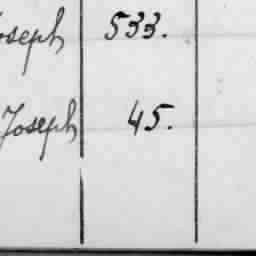 oseph 533.
Joseph 45.